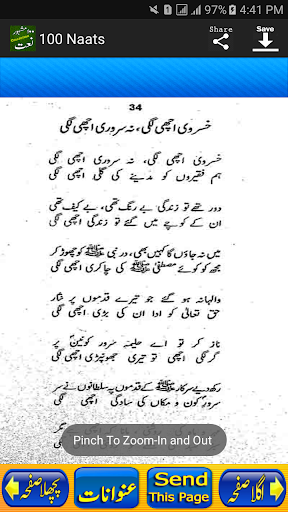 75% 4:41 PM
100 Naats
Share
Save
34
خسروی اچھی لگی ، نہ سروری اچھی لگی
خسروی اچھی لگی، نہ سروری اچھی لگی
ہم فقیروں کو مدینے کی گلی اچھی لگی
دور تھے تو زندگی بے رنگ تھی، بے کیف تھی
ان کے کوچے میں گئے تو زندگی اچھی لگی
میں نہ جاؤں گا کہیں بھی، در نبی ﷺ کو چھوڑ کر
مجھ کو کوئے مصطفیٰ ﷺ کی چاکری اچھی لگی
والہانہ ہو گئے جو تیرے قدموں پر نثار
حق تعالیٰ کو ادا ان کی بڑی اچھی لگی
ناز کر تو اے حلیمہ سرور کونین پر
گر لگی اچھی تو تیری جھونپڑی اچھی لگی
رکھ دیے سرکار ﷺ کے قدموں پہ سلطانوں نے سر
سرور کون و مکاں کی سادگی اچھی لگی
Pinch To Zoom-In and Out
پچھلا صفحہ
عنوانات
Send
This Page
اگلا صفحہ